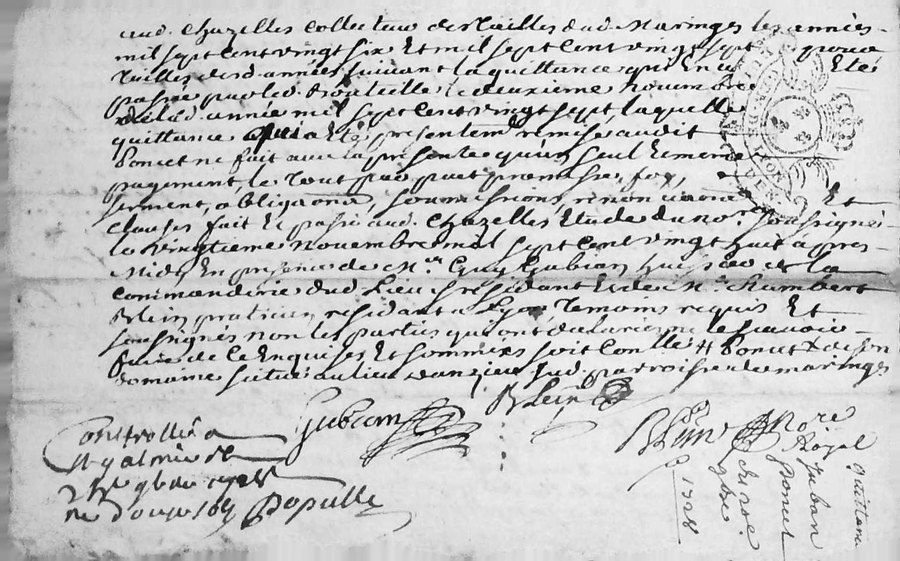 aud. Chazelles Collecteur des Tailles dud. Maringes les années
mil sept Cent vingt six Et mil sept Cent vingt sept
Tailles desd. années suivant la quittance qui En a Eté
passée par led. le deuxieme novembre
de lad. année mil sept Cent vingt sept, laquelle
quittance a Eté presentemt. remise audit
Poncet ne fait avec la presente qu'un seul Et meme
payement, le Tout par
serment, obligaons, soumissions, renonciaons Et
Clauses fait Et passé aud. Chazelles Etude du nore. soussigné
le vingtieme novembre mil sept Cent vingt huit apres
Midy En presence de Me. Guy Gubian huissier de la
Commanderie dud. Lieu y residant Et de Me. Rambert
Blein praticien residant a Lyon Temoins requis Et
soussignés non les parties qui ont declaré ne le scavoir
faire de Ce Enquises Et sommées soit Conllé Poncet de son
domaine situé au lieu dud. parroisse de maringes
Gubian
Blein
Blein Nore
Royal
Controllé a
St galmier le
9bre 1728
Populle
quittance
Gubian
Poncet
1728